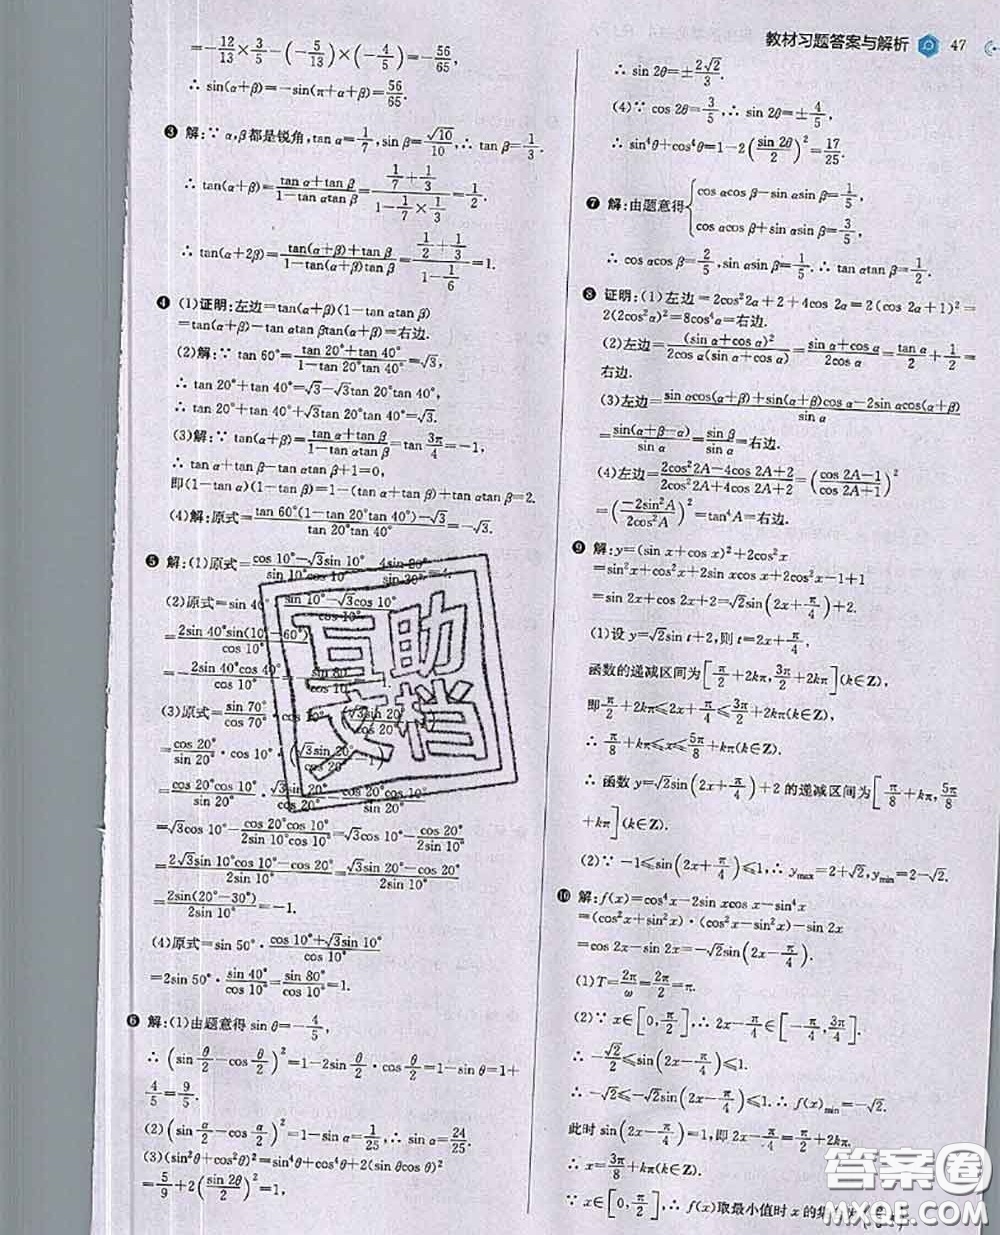 教材习题答案与解析 47
=-12/13×3/5-(-5/13)×(-4/5)=-56/65,
∴ sin(α+β)=-sin(π+α+β)=56/65.
❸ 解:∵ α,β都是锐角,tan α=1/7,sin β=√10/10,∴ tan β=1/3.
∴ tan(α+β)=(tan α+tan β)/(1-tan αtan β)=(1/7+1/3)/(1-1/7×1/3)=1/2.
∴ tan(α+2β)=(tan(α+β)+tan β)/(1-tan(α+β)tan β)=(1/2+1/3)/(1-1/6)=1.
❹ (1)证明:左边=tan(α+β)(1-tan αtan β)
=tan(α+β)-tan αtan βtan(α+β)=右边.
(2)解:∵ tan 60°=(tan 20°+tan 40°)/(1-tan 20°tan 40°)=√3,
∴ tan 20°+tan 40°=√3-√3tan 20°tan 40°,
∴ tan 20°+tan 40°+√3tan 20°tan 40°=√3.
(3)解:∵ tan(α+β)=(tan α+tan β)/(1-tan αtan β)=tan 3π/4=-1,
∴ tan α+tan β-tan αtan β+1=0,
即(1-tan α)(1-tan β)=1-(tan α+tan β)+tan αtan β=2.
(4)解:原式=(tan 60°(1-tan 20°tan 40°)-√3)/(tan 20°tan 40°)=-√3.
❺ 解:(1)原式=(cos 10°-√3sin 10°)/(sin 10°cos 10°) 4sin 20°/sin 20°=4.
(2)原式=sin 40° (sin 10°-√3cos 10°)/cos 10°
=2sin 40°sin(10°-60°)/cos 10°
=-2sin 40°cos 40°/cos 10° sin 80°
(3)原式=sin 70°/cos 70° √3sin 20°
=cos 20°/sin 20°·cos 10°·(√3sin 20°-cos 20°
=cos 20°cos 10°/sin 20°·√3sin 20° cos 20°cos 10° sin 20°
=√3cos 10°-cos 20°cos 10°/2sin 10°cos 10°=√3cos 10°-cos 20°/2sin 10°
=(2√3sin 10°cos 10°-cos 20°)/2sin 10°=(√3sin 20°-cos 20°)/2sin 10°
=2sin(20°-30°)/2sin 10°=-1.
(4)原式=sin 50°·(cos 10°+√3sin 10°)/cos 10°
=2sin 50°·sin 40°/cos 10°=sin 80°/cos 10°=1.
❻ 解:(1)由题意得 sin θ=-4/5,
∴ (sin θ/2-cos θ/2)²=1-2sin θ/2·cos θ/2=1-sin θ=1+
4/5=9/5.
(2)(sin α/2-cos α/2)²=1-sin α=1/25,∴ sin α=24/25.
(3)(sin²θ+cos²θ)²=sin⁴θ+cos⁴θ+2(sin θcos θ)²
=5/9+2(sin 2θ/2)²=1,
∴ sin 2θ=±2√2/3.
(4)∵ cos 2θ=3/5,∴ sin 2θ=±4/5,
∴ sin⁴θ+cos⁴θ=1-2(sin 2θ/2)²=17/25.
❼ 解:由题意得{cos αcos β-sin αsin β=1/5,
cos αcos β+sin αsin β=3/5,
∴ cos αcos β=2/5,sin αsin β=1/5.∴ tan αtan β=1/2.
❽ 证明:(1)左边=2cos²2α+2+4cos 2α=2(cos 2α+1)²=
2(2cos²α)²=8cos⁴α=右边.
(2)左边=(sin α+cos α)²/2cos α(sin α+cos α)=(sin α+cos α)/2cos α=tan α/2+1/2=
右边.
(3)左边=(sin αcos(α+β)+sin(α+β)cos α-2sin αcos(α+β))/sin α
=sin(α+β-α)/sin α=sin β/sin α=右边.
(4)左边=(2cos²2A-4cos 2A+2)/(2cos²2A+4cos 2A+2)=((cos 2A-1)/(cos 2A+1))²
=(-2sin²A/2cos²A)²=tan⁴A=右边.
❾ 解:y=(sin x+cos x)²+2cos²x
=sin²x+cos²x+sin 2x+2cos²x-1+1
=sin 2x+cos 2x+2=√2sin(2x+π/4)+2.
(1)设 y=√2sin t+2,则 t=2x+π/4,
函数的递减区间为[π/2+2kπ,3π/2+2kπ](k∈Z),
即π/2+2kπ≤2x+π/4≤3π/2+2kπ(k∈Z),
∴ π/8+kπ≤x≤5π/8+kπ(k∈Z),
∴ 函数 y=√2sin(2x+π/4)+2 的递减区间为[π/8+kπ,5π/8
+kπ](k∈Z).
(2)∵ -1≤sin(2x+π/4)≤1,∴ ymax=2+√2,ymin=2-√2.
❿ 解:f(x)=cos⁴x-2sin xcos x-sin⁴x
=(cos²x+sin²x)·(cos²x-sin²x)-sin 2x
=cos 2x-sin 2x=-√2sin(2x-π/4).
(1)T=2π/ω=2π/2=π.
(2)∵ x∈[0,π/2],∴ 2x-π/4∈[-π/4,3π/4].
∴ -√2/2≤sin(2x-π/4)≤1.
∴ -√2≤-√2sin(2x-π/4)≤1.∴ f(x)min=-√2.
此时 sin(2x-π/4)=1,即 2x-π/4=π/2+2kπ,
∴ x=3π/8+kπ(k∈Z).
∵ x∈[0,π/2],∴ f(x)取最小值时 x 的集
互助文档
答案圈
MXQE.COM